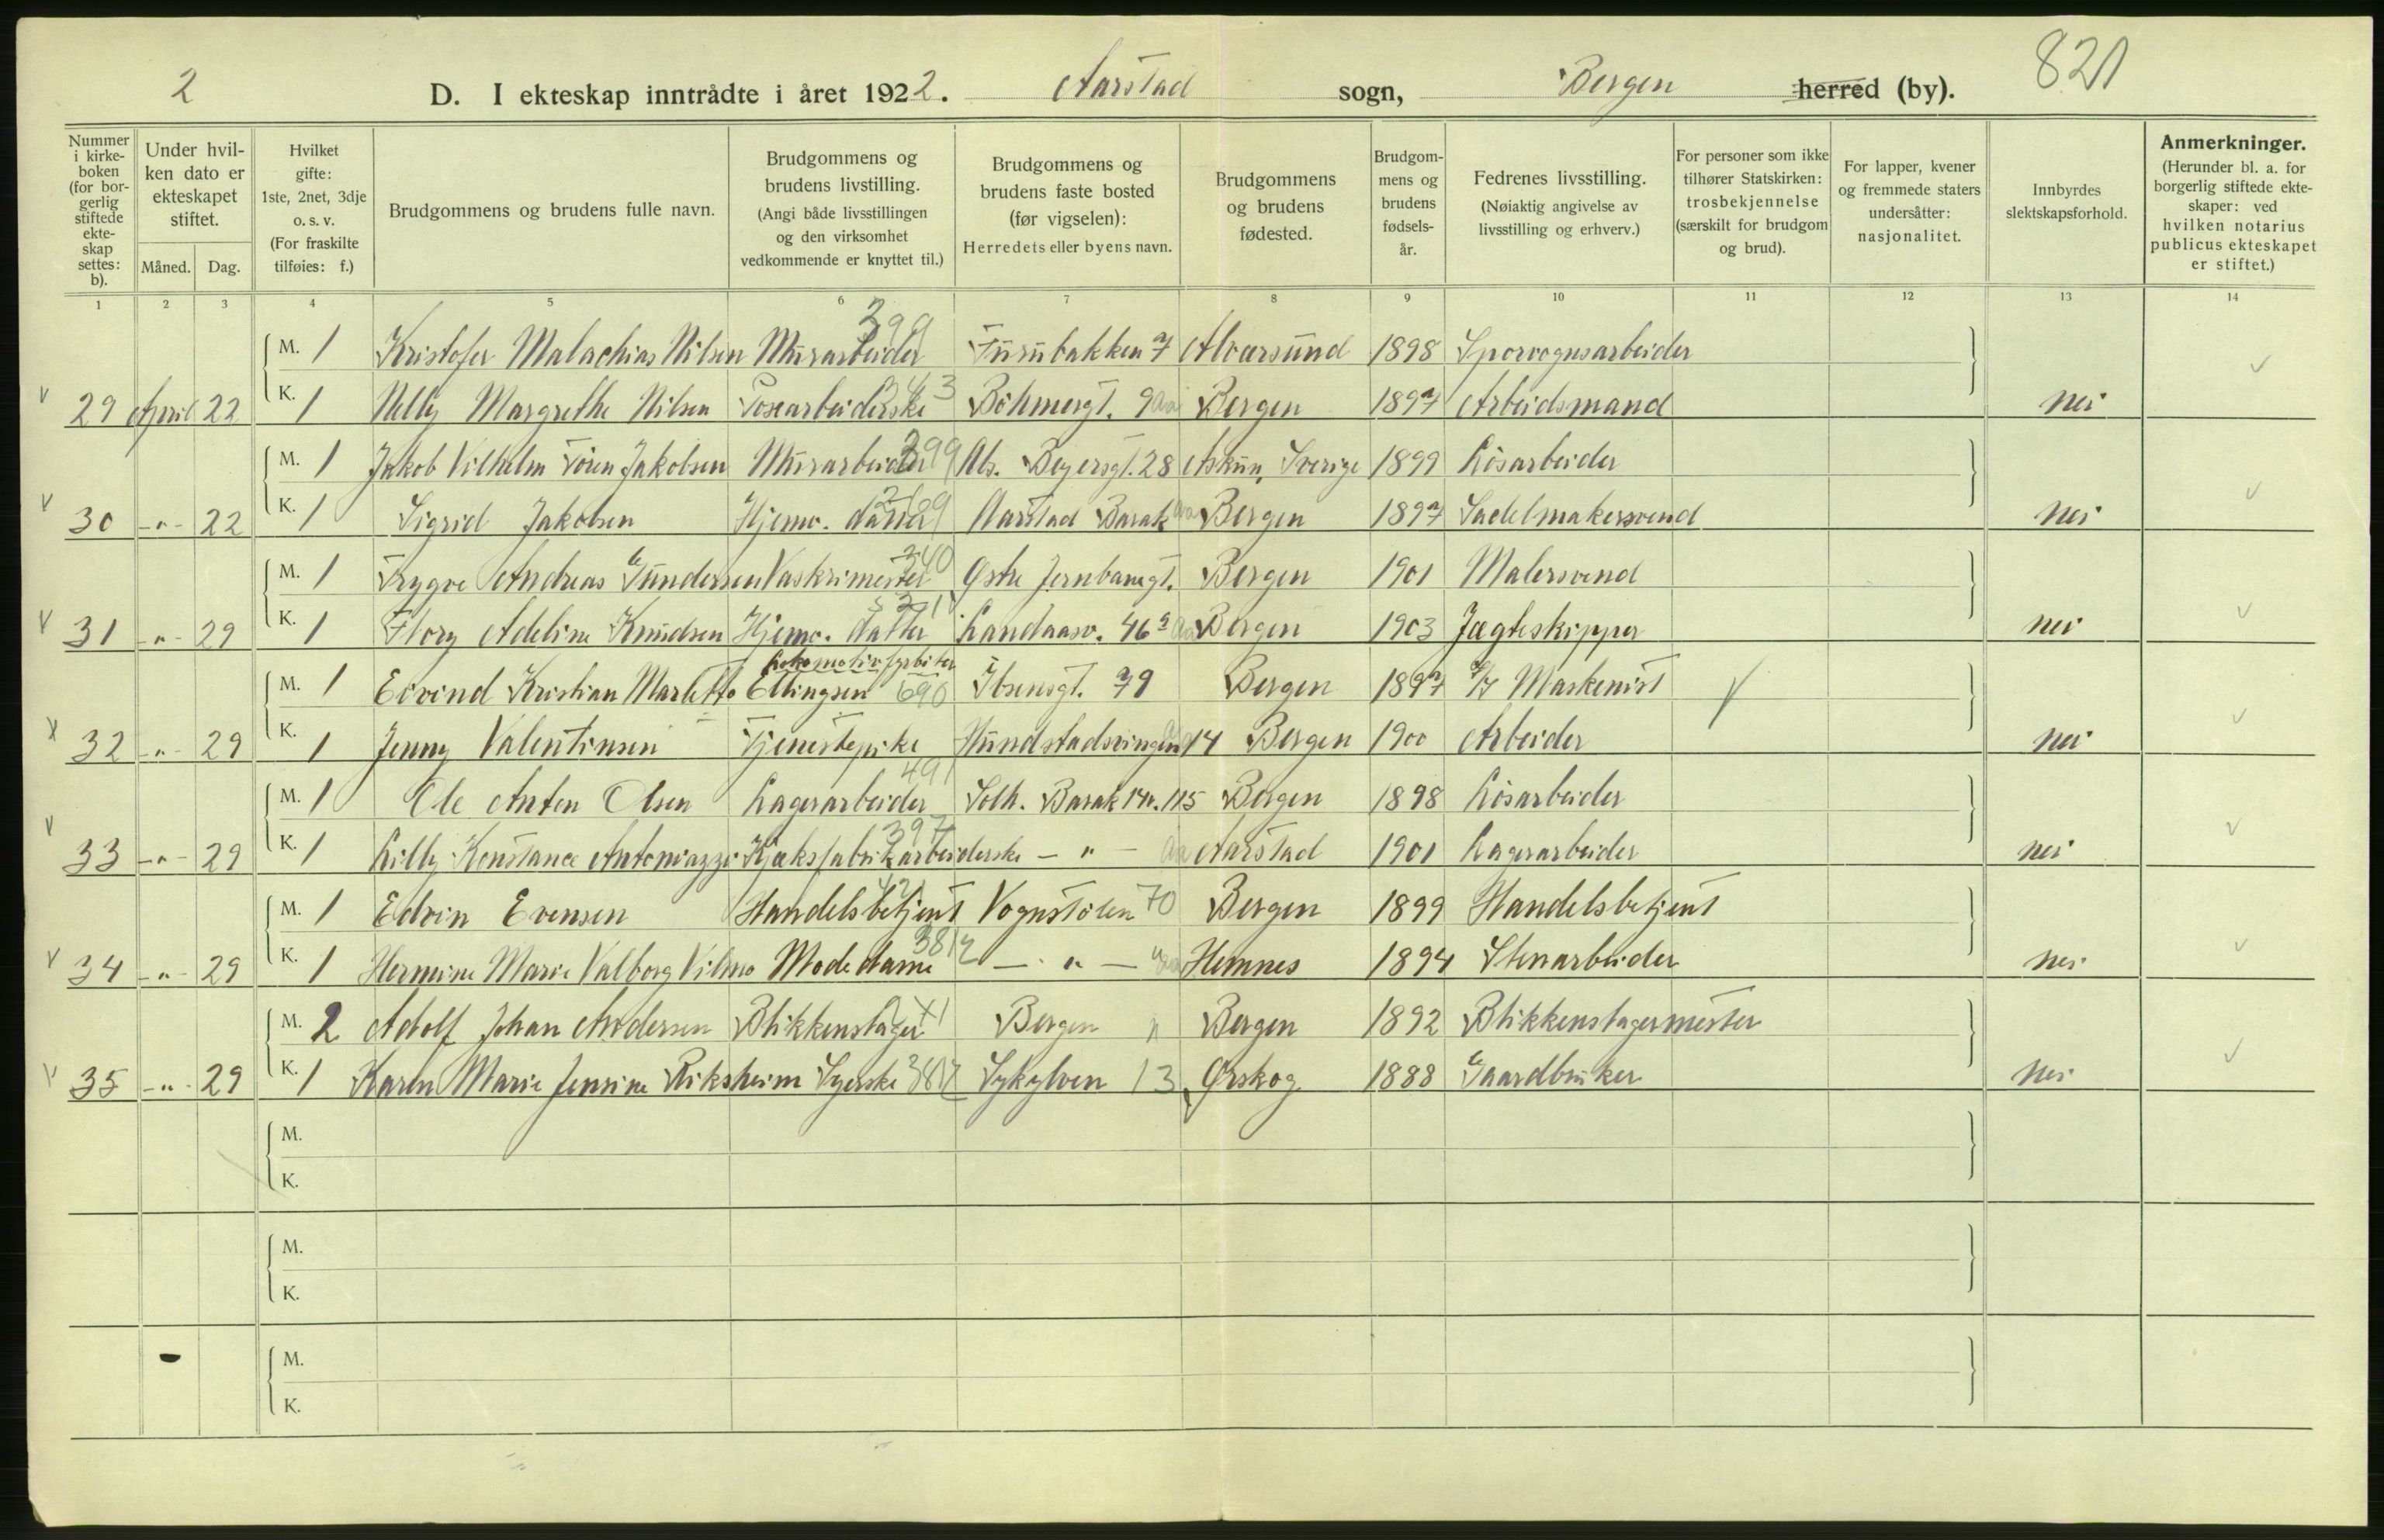 2 D. I ekteskap inntrådte i året 1922. Aarstad sogn, Bergen herred (by). 821
Nummer i kirkeboken (for borgerlig stiftede ekteskap settes: b).
Under hvilken dato er ekteskapet stiftet.
Måned. Dag.
Hvilket gifte: 1ste, 2net, 3dje o. s. v. (For fraskilte tilføies: f.)
Brudgommens og brudens fulle navn.
Brudgommens og brudens livstilling. (Angi både livsstillingen og den virksomhet vedkommende er knyttet til.)
Brudgommens og brudens faste bosted (før vigselen): Herredets eller byens navn.
Brudgommens og brudens fødested.
Brudgommens og brudens fødselsår.
Fedrenes livsstilling. (Nøiaktig angivelse av livsstilling og erhverv.)
For personer som ikke tilhører Statskirken: trosbekjennelse (særskilt for brudgom og brud).
For lapper, kvener og fremmede staters undersåtter: nasjonalitet.
Innbyrdes slektskapsforhold.
Anmerkninger. (Herunder bl. a. for borgerlig stiftede ekteskaper: ved hvilken notarius publicus ekteskapet er stiftet.)
1 2 3 4 5 6 7 8 9 10 11 12 13 14
M. 1 Kristofer Malachias Nilsen Murarbeider 399 Furubakken 7 Alversund 1898 Sporvognsarbeider
29 April 22 K. 1 Nelly Margrethe Nilsen Posearbeiderske 343 Böhmergt. 9 aa Bergen 1897 Arbeidsmand nei
M. 1 Jakob Vilhelm Sören Jakobsen Murarbeider 399 Ab. Beyersgt. 28 Askun, Sverige 1899 Løsarbeider
30 -"- 22 K. 1 Sigrid Jakobsen Hjemv. datter Aarstad Barak aa Bergen 1897 Sadelmakersvend nei
M. 1 Trygve Andreas Gundersen Vaskrimester 340 Østre Jernbanegt. Bergen 1901 Malersvend
31 -"- 29 K. 1 Flory Adeline Knudsen Hjemv. datter Landaasv. 46a aa Bergen 1903 Jægteskipper nei
Lokomotivfyrbøter
M. 1 Eivind Kristian Marletto Ellingsen 690 Ibsensgt. 79 Bergen 1897 Maskenist
32 -"- 29 K. 1 Jenny Valentinsen Tjenestepike Hundstadsvingen 14 Bergen 1900 Arbeider nei
M. 1 Ole Anton Olsen Lagerarbeider 491 Solh. Barak 14 n. 115 Bergen 1898 Løsarbeider
33 -"- 29 K. 1 Lilly Konstance Antoniazzi Kjæksfabrikarbeiderske 397 -"- aa Aarstad 1901 Lagerarbeider nei
M. 1 Edvin Evensen Handelsbetjent Vognstölen 70 Bergen 1899 Handelsbetjent
34 -"- 29 K. 1 Hermine Marie Valborg Vilmo Modedame -"- Hemnes 1894 Stenarbeider nei
M. 2 Adolf Johan Andersen Blikkenslager Bergen Bergen 1892 Blikkenslagermester
35 -"- 29 K. 1 Karen Marie Jensine Riksheim Syerske Sykylven 13 Ørskog 1888 Gaardbruker nei
M.
K.
M.
K.
M.
K.